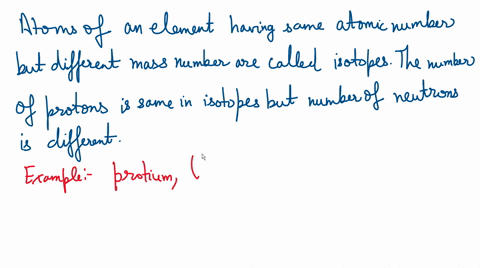 Atoms of an element having same atomic number
but different mass number are called isotopes. The number
of protons is same in isotopes but number of neutrons
is different.
Example:- protium, (